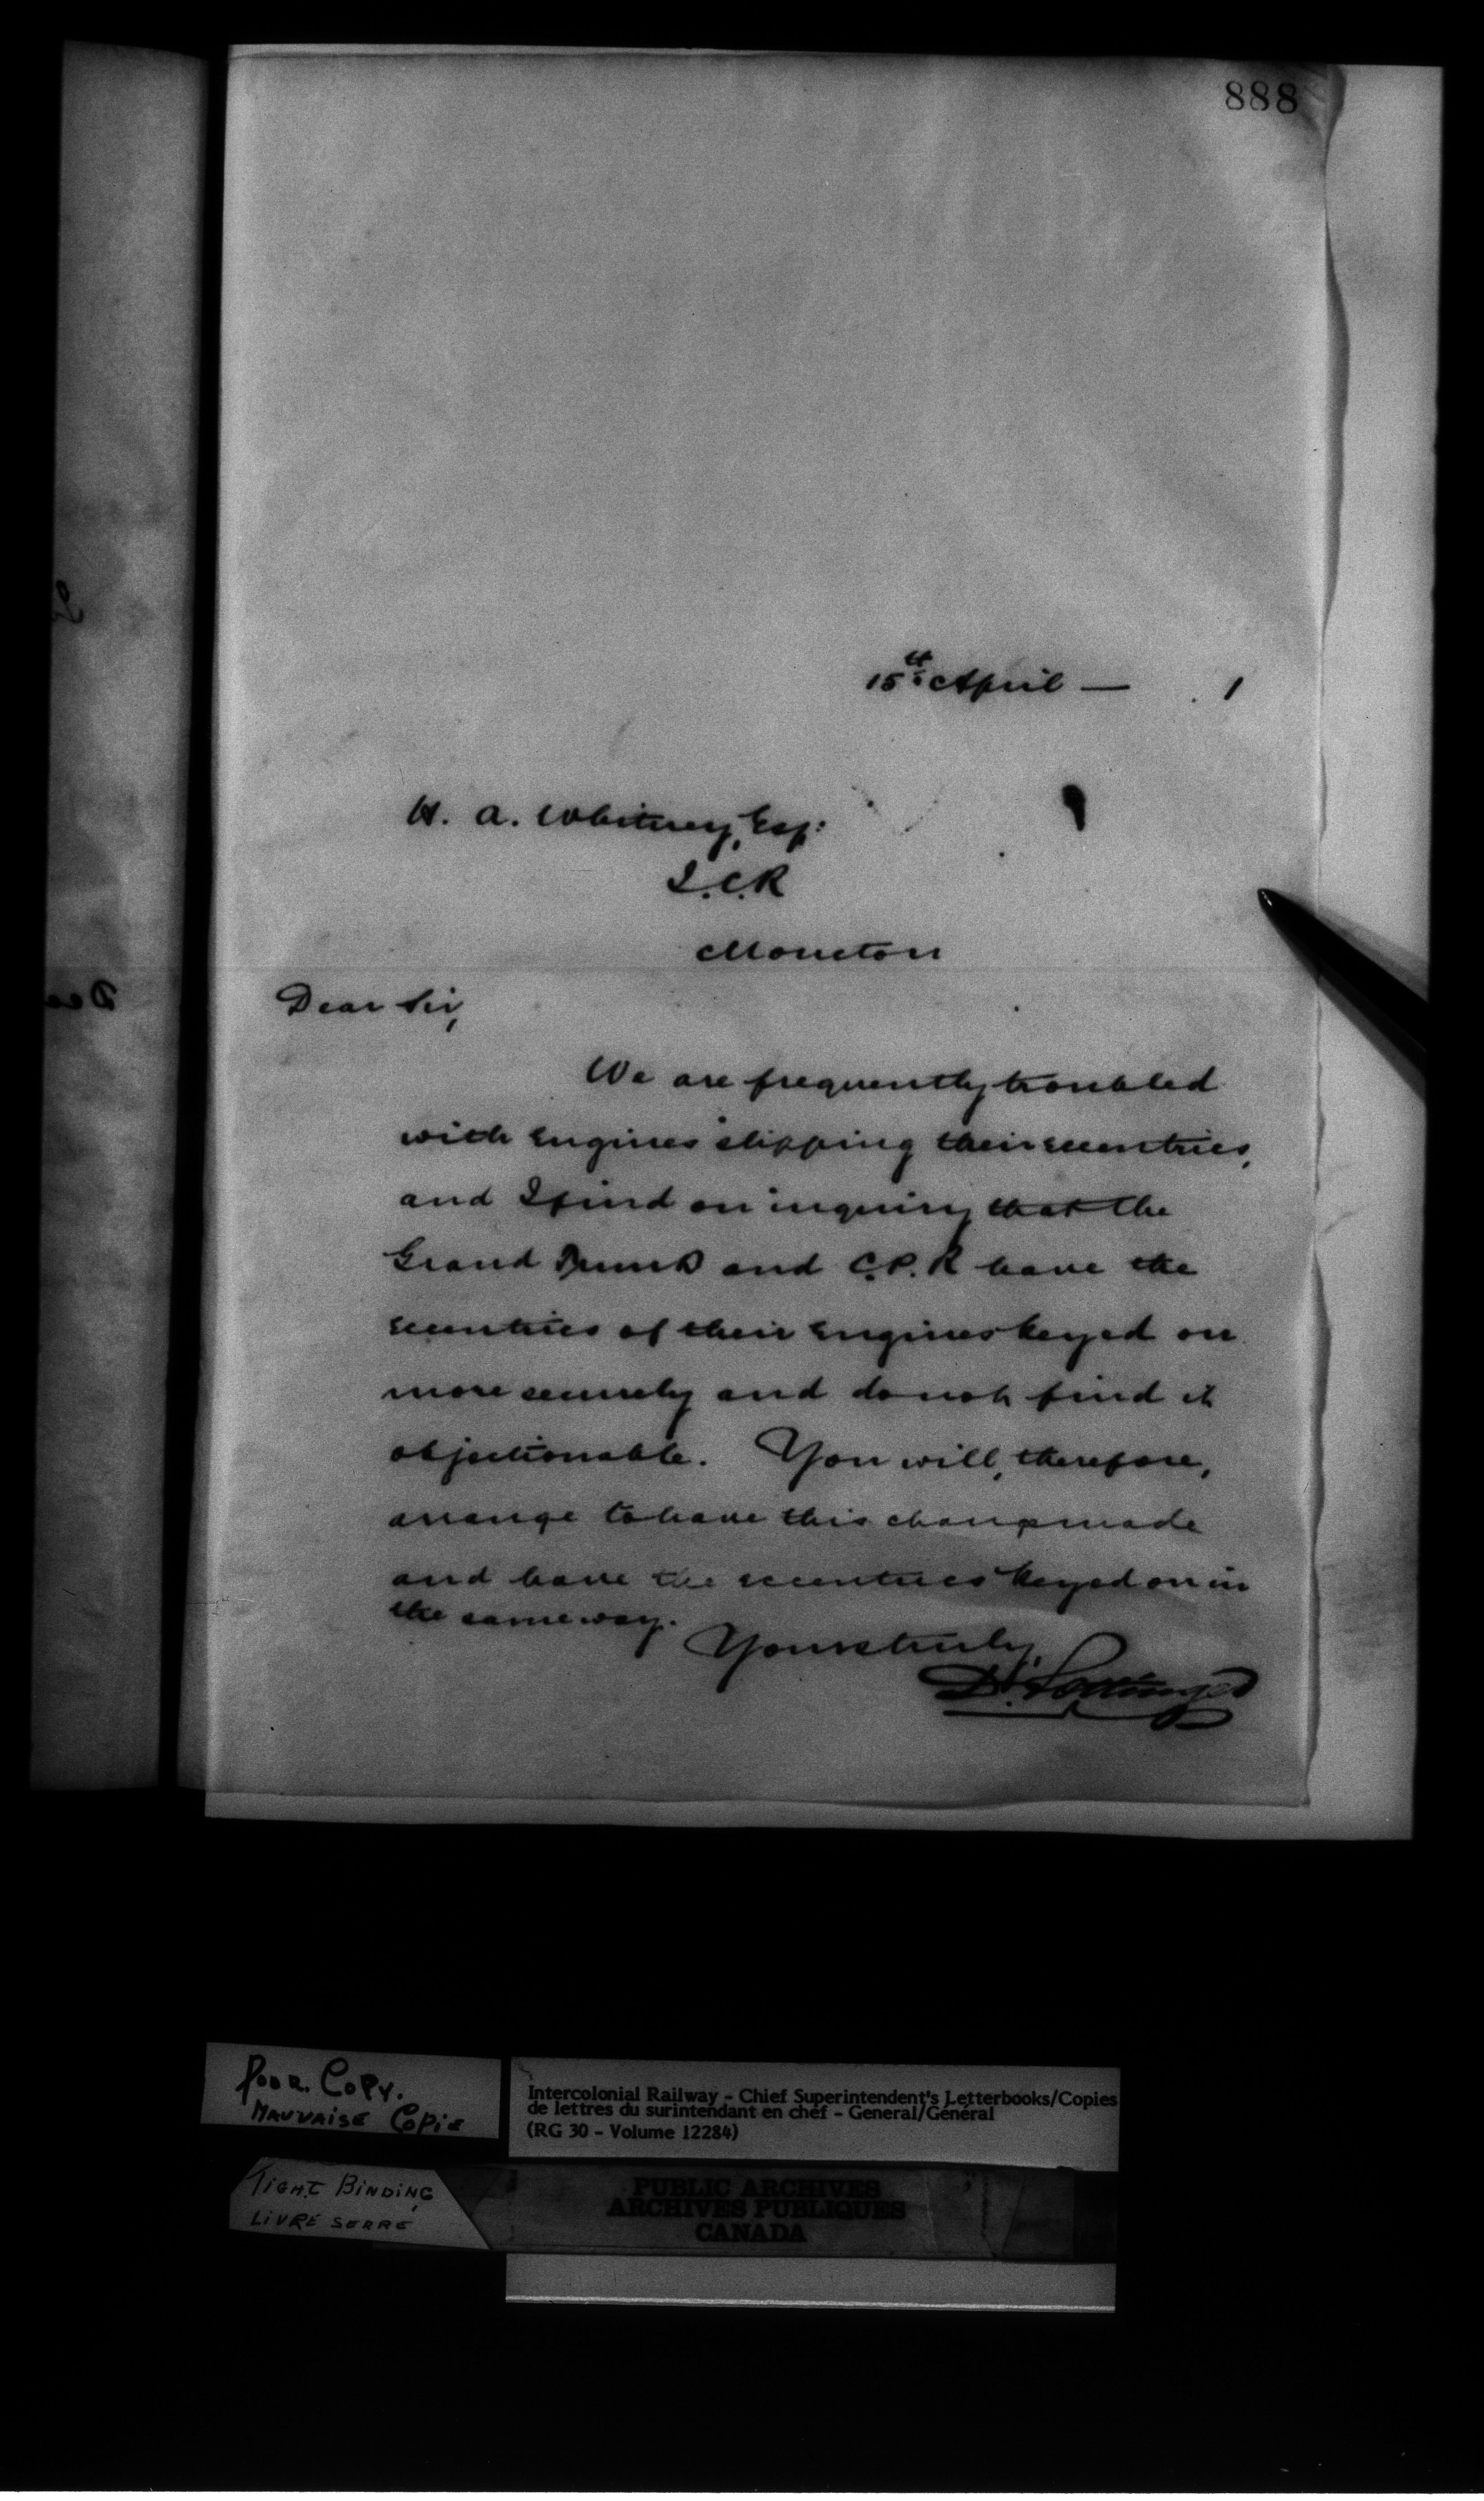 888
15th April — 1
H. A. Whitney, Esq:
I.C.R
Moncton
Dear Sir,
We are frequently troubled
with Engines slipping their eccentrics,
and I find on inquiry that the
Grand Trunk and C.P.R have the
eccentrics of their Engines keyed on
more securely and do not find it
objectionable. You will, therefore,
arrange to have this change made
and have the eccentrics keyed on in
the same way.
Yours truly,
D. Pottinger
Poor Copy.
Mauvaise Copie
Intercolonial Railway – Chief Superintendent's Letterbooks/Copies
de lettres du surintendant en chef – General/Général
(RG 30 – Volume 12284)
Tight Binding
Livre serré
PUBLIC ARCHIVES
ARCHIVES PUBLIQUES
CANADA